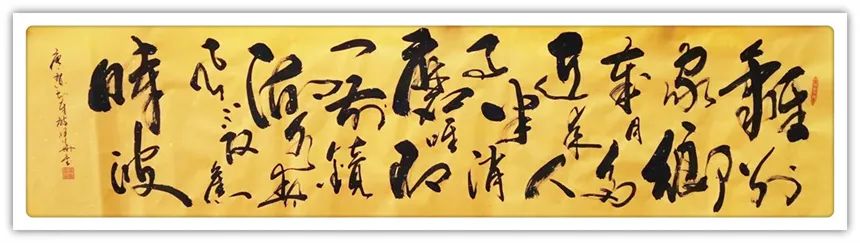 離別
家鄉
歲月多
近來人
事半消
磨唯有
门前鏡
湖水春
風不改舊
時波